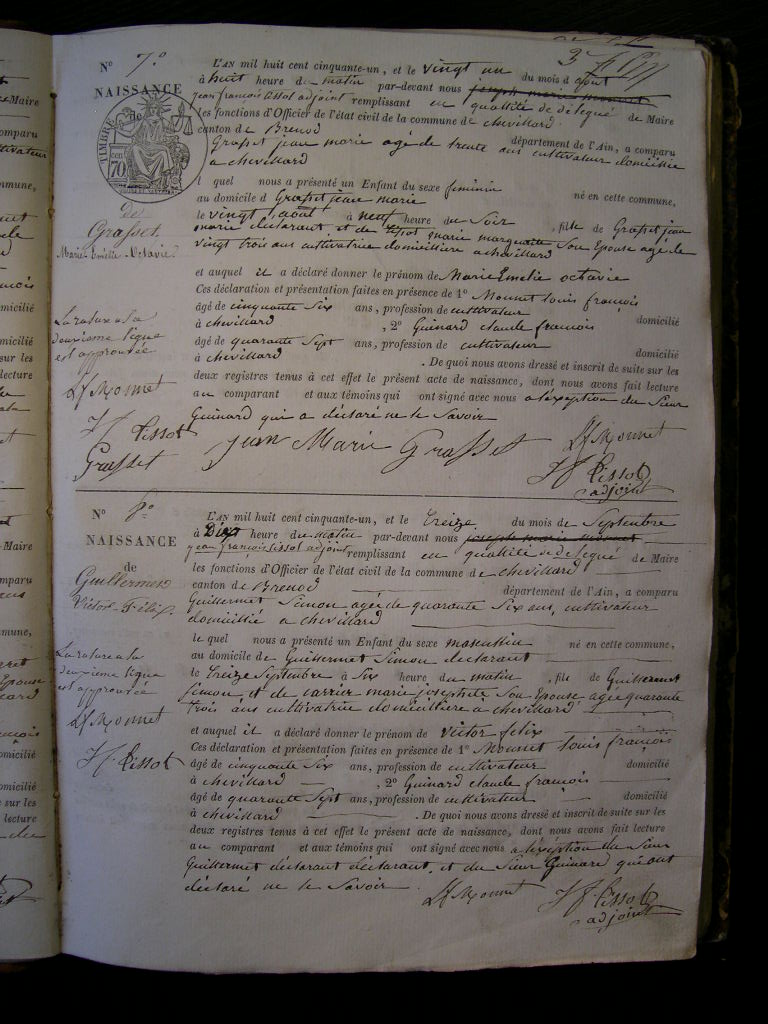 N° 7°
NAISSANCE
TIMBRE
cen
70
de
Grasset
Marie-Emélie-Octavie
L'AN mil huit cent cinquante-un, et le vingt un du mois d'aout
à huit heure du matin par-devant nous joseph marie monnet
jean françois tissot adjoint remplissant en qualitté de délegué de Maire
les fonctions d'Officier de l'état civil de la commune de chevillard
canton de Brenod département de l'Ain, a comparu
Grasset jean marie agé de trente ans cultivateur domicilié
a chevillard
l quel nous a présenté un Enfant du sexe feminin
au domicile d Grasset jean marie né en cette commune,
le vingt aout à neuf heure du Soir, fille de Grasset jean
marie declarant, et de tissot marie marguerite Son Epouse agée de
vingt trois ans cultivatrice domicilliere a chevillard
et auquel il a déclaré donner le prénom de Marie Emelie octavie
Ces déclaration et présentation faites en présence de 1° Monnet louis françois
âgé de cinquante Six ans, profession de cultivateur domicilié
à chevillard , 2° Guinard claude francois
âgé de quarante Sept ans, profession de cultivateur domicilié
à chevillard . De quoi nous avons dressé et inscrit de suite sur les
deux registres tenus à cet effet le présent acte de naissance, dont nous avons fait lecture
au comparant et aux témoins qui ont signé avec nous a léxeption du Sieur
Guinard qui a déclaré ne le Savoir
La rature a la
deuxieme ligne
est approuvée
Lf Monnet
Jf Tissot
Grasset
Jean Marie Grasset
Lf Monnet
Jf Tissot
adjoint
N° 8°
NAISSANCE
de
Guillermet
Victor-Félix.
L'AN mil huit cent cinquante-un, et le treize du mois de Septembre
à Dix heure du matin par-devant nous joseph marie monnet
jean françois tissot adjoint remplissant en qualitté de délegué de Maire
les fonctions d'Officier de l'état civil de la commune de chevillard
canton de Brenod département de l'Ain, a comparu
Guillermet Simon agé de quarante Six ans, cultivateur
domicillié a chevillard
le quel nous a présenté un Enfant du sexe masculin né en cette commune,
au domicile de Guillermet Simon declarant
le treize Septembre à Six heure du matin, fils de Guillermet
Simon, et de carrier marie josephte Son Epouse agée quarante
trois ans cultivatrice domicilliere a chevillard
et auquel il a déclaré donner le prénom de victor felix
Ces déclaration et présentation faites en présence de 1° Monnet louis françois
âgé de cinquante Six ans, profession de cultivateur domicilié
à chevillard , 2° Guinard claude francois
âgé de quarante Sept ans, profession de cultivateur domicilié
à chevillard . De quoi nous avons dressé et inscrit de suite sur les
deux registres tenus à cet effet le présent acte de naissance, dont nous avons fait lecture
au comparant et aux témoins qui ont signé avec nous a léxéption du Sieur
Guillermet déclarant déclarant, et du Sieur Guinard qui ont
déclaré ne le Savoir
La rature a la
deuxième ligne
est approuvée
Lf Monnet
Jf Tissot
Lf Monnet
Jf Tissot
adjoint